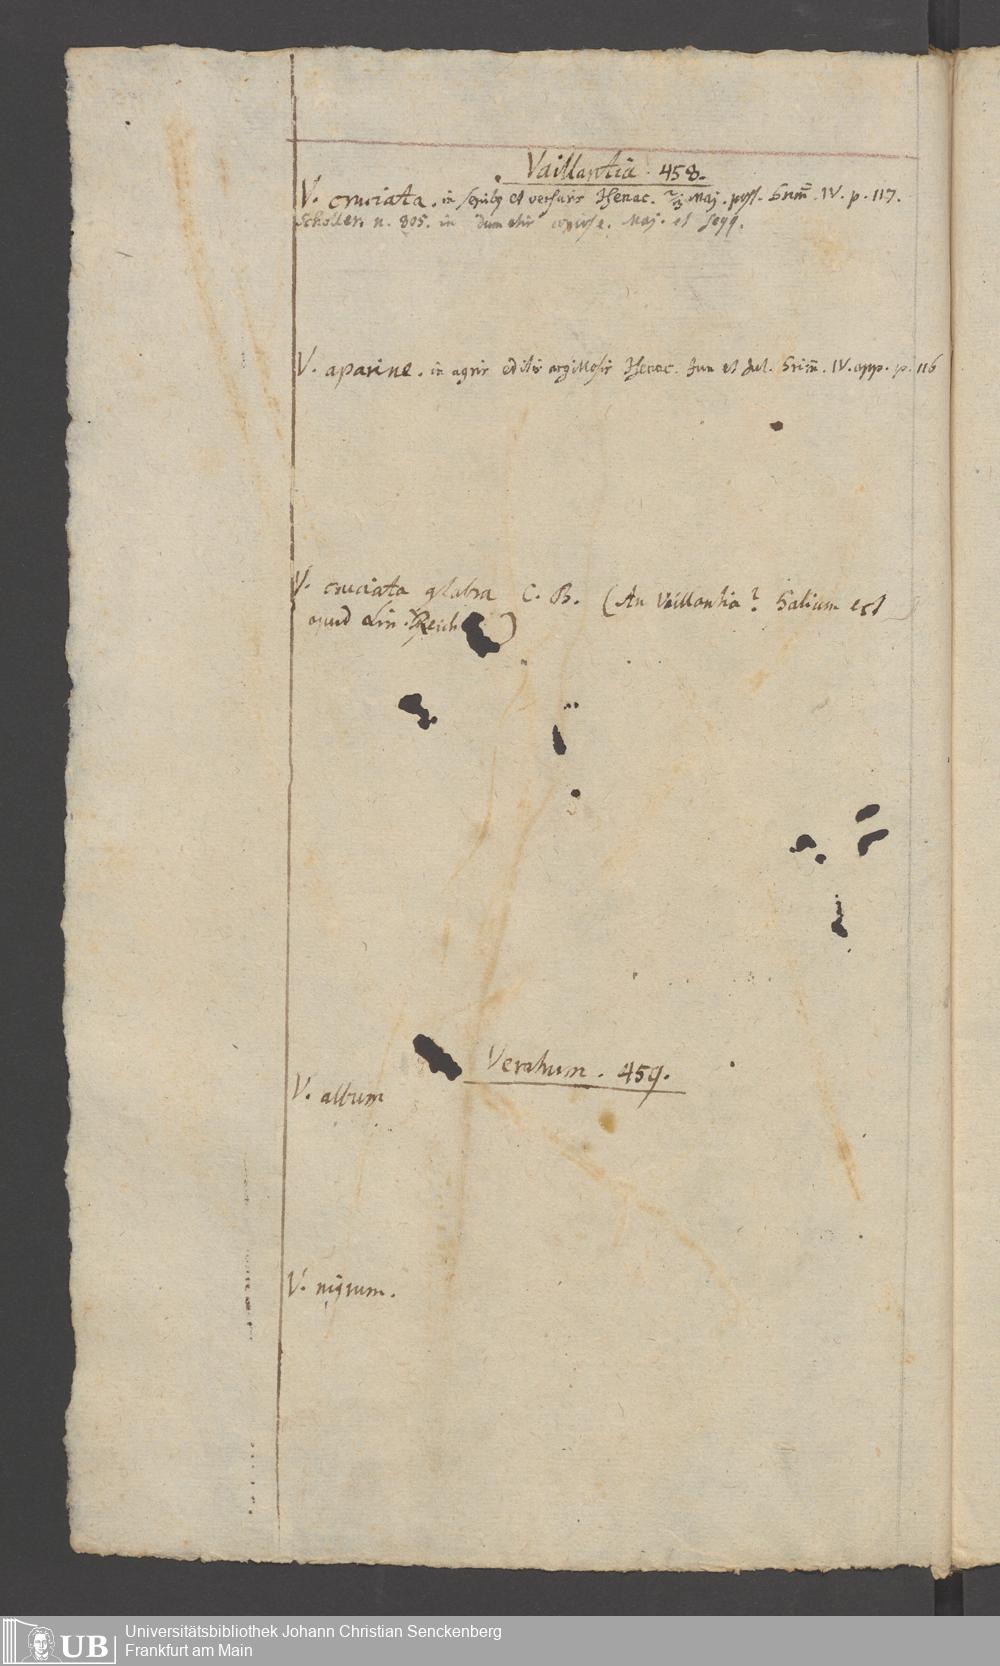 Vaillantia. 458.
V. cruciata. in sepibus et versuris Isenac. Maj. Grim̄. IV. p. 117.
Scholler. n. 805. in dumetis copiose. Maj. et seqq.
V. aparine. in agris editis argillosis Isenac. Jun et Jul. Grim̄. IV. app. p. 116
V. cruciata glabra C. B. (An Vaillantia? Galium est
apud Lin. Reich )
Veratrum. 459.
V. album
V. nigrum.
UB
Universitätsbibliothek Johann Christian Senckenberg
Frankfurt am Main